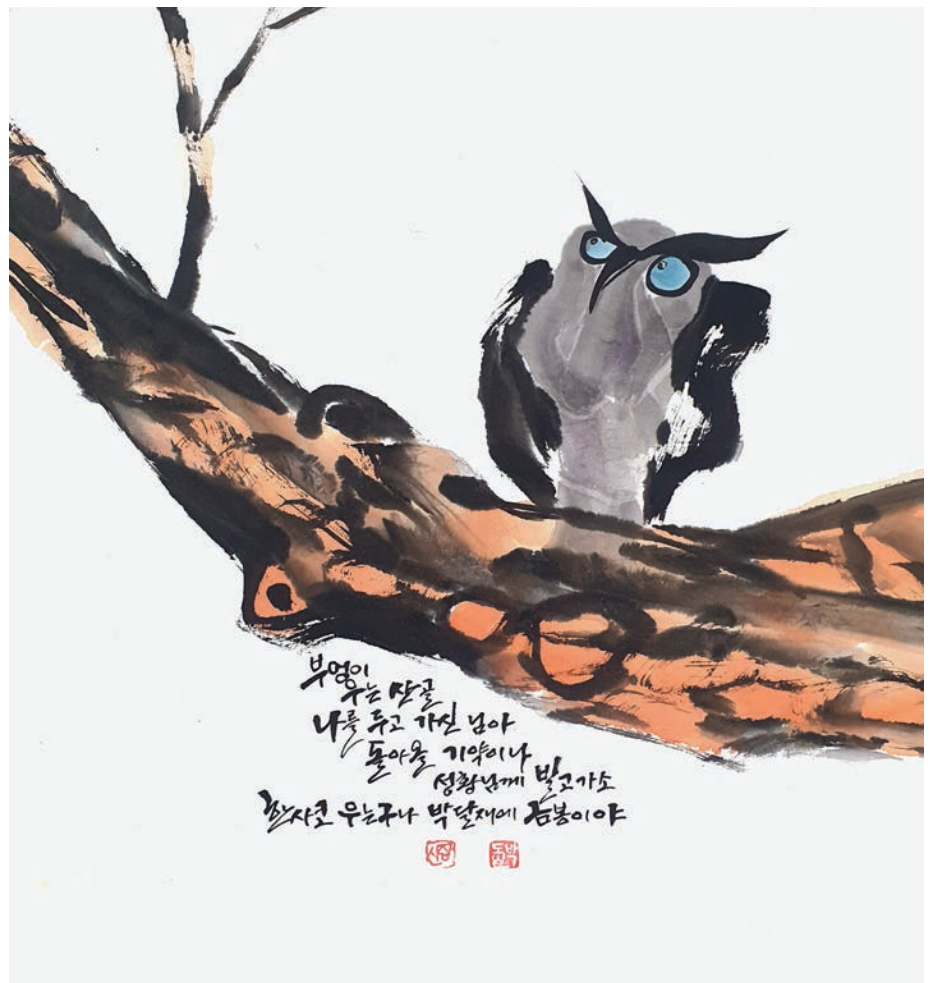 부엉이
우는 산골
나를 두고 가신 님아
돌아올 기약이나
성황님께 빌고가소
한사코 우는구나 박달재에 금봉이야